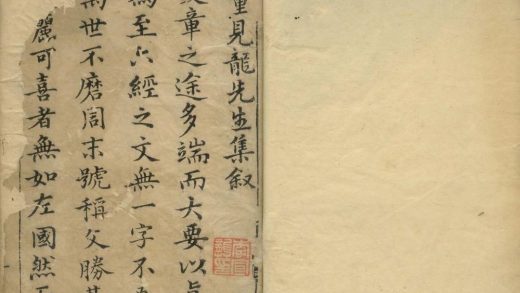 董見龍先生集叙
文章之途多端而大要以旨
為至六經之文無一字不
萬世不磨周末號稱文勝其
麗可喜者無如左國然